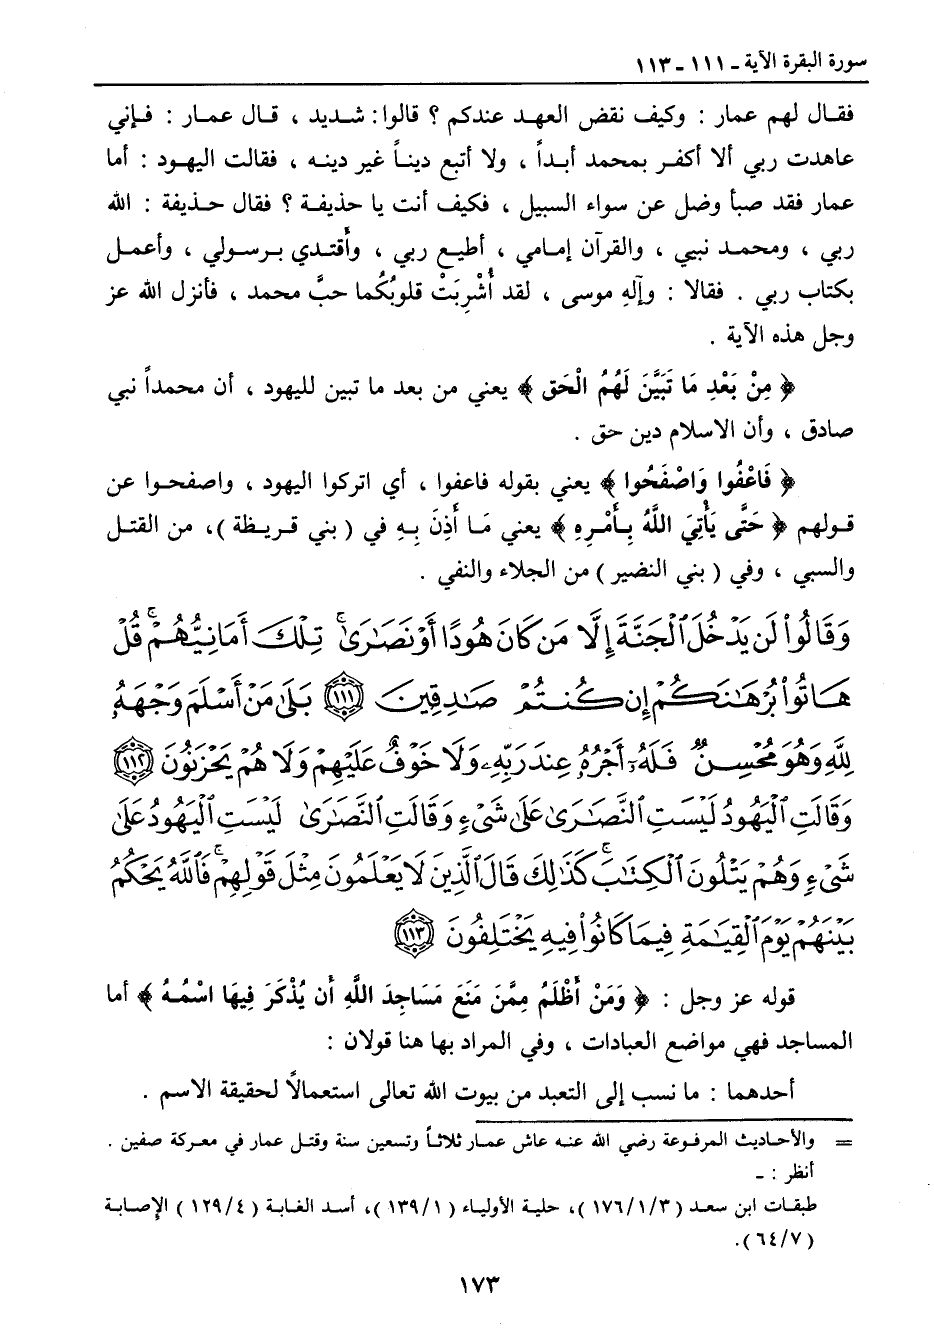 سورة البقرة الآية ـ ١١١ ـ ١١٣
فقال لهم عمار : وكيف نقض العهد عندكم ؟ قالوا : شديد ، قال عمار : فإني
عاهدت ربي ألا أكفر بمحمد أبداً ، ولا أتبع ديناً غير دينه ، فقالت اليهود : أما
عمار فقد صبأ وضل عن سواء السبيل ، فكيف أنت يا حذيفة ؟ فقال حذيفة : الله
ربي ، ومحمد نبيي ، والقرآن إمامي ، أطيع ربي ، وأقتدي برسولي ، وأعمل
بكتاب ربي . فقالا : وآلهِ موسى ، لقد أُشْرِبَتْ قلوبُكُما حبَّ محمد ، فأنزل الله عز
وجل هذه الآية .
﴿ مِنْ بَعْدِ مَا تَبَيَّنَ لَهُمُ الْحَق ﴾ يعني من بعد ما تبين لليهود ، أن محمداً نبي
صادق ، وأن الاسلام دين حق .
﴿ فَاعْفُوا وَاصْفَحُوا ﴾ يعني بقوله فاعفوا ، أي اتركوا اليهود ، واصفحوا عن
قولهم ﴿ حَتَّى يَأْتِيَ اللَّهُ بِأَمْرِهِ ﴾ يعني مَا أَذِنَ بِهِ في ( بني قريظة )، من القتل
والسبي ، وفي ( بني النضير ) من الجلاء والنفي .
وَقَالُواْ لَن يَدْخُلَ ٱلْجَنَّةَ إِلَّا مَن كَانَ هُودًا أَوْ نَصَٰرَىٰ ۗ تِلْكَ أَمَانِيُّهُمْ ۗ قُلْ
هَاتُواْ بُرْهَٰنَكُمْ إِن كُنتُمْ صَٰدِقِينَ ﴿١١١﴾ بَلَىٰ مَنْ أَسْلَمَ وَجْهَهُۥ
لِلَّهِ وَهُوَ مُحْسِنٌ فَلَهُۥٓ أَجْرُهُۥ عِندَ رَبِّهِۦ وَلَا خَوْفٌ عَلَيْهِمْ وَلَا هُمْ يَحْزَنُونَ ﴿١١٢﴾
وَقَالَتِ ٱلْيَهُودُ لَيْسَتِ ٱلنَّصَٰرَىٰ عَلَىٰ شَىْءٍ وَقَالَتِ ٱلنَّصَٰرَىٰ لَيْسَتِ ٱلْيَهُودُ عَلَىٰ
شَىْءٍ وَهُمْ يَتْلُونَ ٱلْكِتَٰبَ ۗ كَذَٰلِكَ قَالَ ٱلَّذِينَ لَا يَعْلَمُونَ مِثْلَ قَوْلِهِمْ ۚ فَٱللَّهُ يَحْكُمُ
بَيْنَهُمْ يَوْمَ ٱلْقِيَٰمَةِ فِيمَا كَانُواْ فِيهِ يَخْتَلِفُونَ ﴿١١٣﴾
قوله عز وجل : ﴿ وَمَنْ أَظْلَمُ مِمَّن مَنَعَ مَسَاجِدَ اللَّهِ أَن يُذْكَرَ فِيهَا اسْمُهُ ﴾ أما
المساجد فهي مواضع العبادات ، وفي المراد بها هنا قولان :
أحدهما : ما نسب إلى التعبد من بيوت الله تعالى استعمالاً لحقيقة الاسم .
= والأحاديث المرفوعة رضي الله عنه عاش عمار ثلاثاً وتسعين سنة وقتل عمار في معركة صفين .
أنظر : ـ
طبقات ابن سعد ( ١٧٦/١/٣ )، حلية الأولياء ( ١٣٩/١ )، أسد الغابة ( ١٢٩/٤ ) الإصابة
( ٦٤/٧ ).
١٧٣